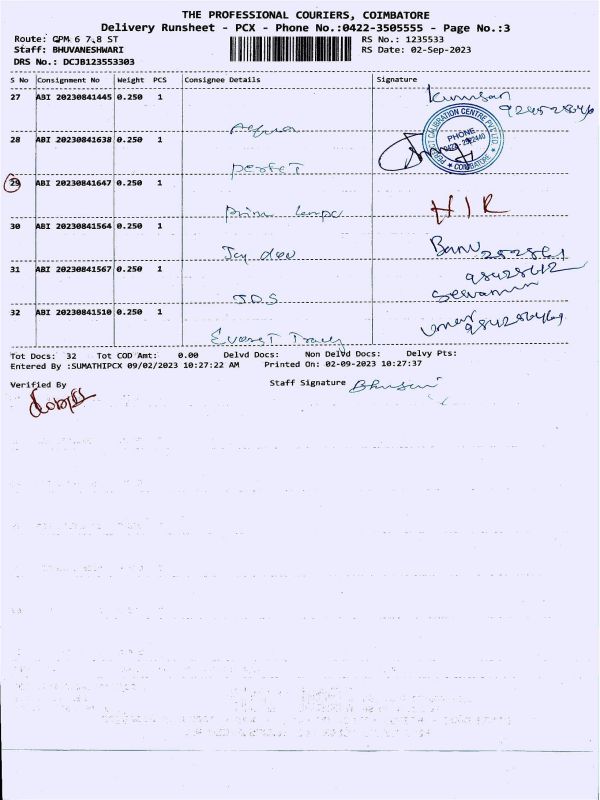 THE PROFESSIONAL COURIERS, COIMBATORE
Delivery Runsheet - PCX - Phone No.:0422-3505555 - Page No.:3
Route: GPM 6 7,8 ST
RS No.: 1235533
Staff: BHUVANESHWARI
RS Date: 02-Sep-2023
DRS No.: DCJB123553303
S No Consignment No Weight PCS Consignee Details Signature
27 ABI 20230841445 0.250 1
Kumsan
28 ABI 20230841638 0.250 1
CALIBRATION CENTRE PVT LTD
PHONE
COIMBATORE
perfeT
29 ABI 20230841647 0.250 1
HIR
30 ABI 20230841564 0.250 1
Jay dev
Banu
31 ABI 20230841567 0.250 1
JDS
32 ABI 20230841510 0.250 1
Everest
Tot Docs: 32 Tot COD Amt: 0.00 Delvd Docs: Non Delvd Docs: Delvy Pts:
Entered By :SUMATHIPCX 09/02/2023 10:27:22 AM Printed On: 02-09-2023 10:27:37
Verified By
Staff Signature